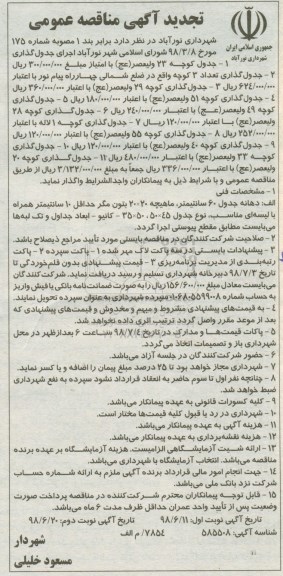 تجدید آگهی مناقصه عمومی
جمهوری اسلامی ایران
شهرداری نورآباد
شهرداری نورآباد در نظر دارد برابر بند ۱ مصوبه شماره ۱۷۵
مورخ ۹۸/۳/۸ شورای اسلامی شهر نورآباد اجرای جدول‌گذاری
۱ – جدول کوچه ۲۳ ولیعصر(عج) با اعتبار مبلغ ۳۰۰/۰۰۰/۰۰۰ ریال
۲ – جدول‌گذاری تعداد ۳ کوچه واقع در ضلع شمالی چهارراه پیام نور با اعتبار
۶۲۴/۰۰۰/۰۰۰ ریال ۳ – جدول‌گذاری کوچه ۲۹ ولیعصر(عج) با اعتبار ۳۶۰/۰۰۰/۰۰۰ ریال
۴ – جدول‌گذاری کوچه ۵۱ ولیعصر(عج) با اعتبار ۱۸۰/۰۰۰/۰۰۰ ریال ۵ – جدول‌گذاری
کوچه ۴۹ ولیعصر(عج) با اعتبار ۲۴۰/۰۰۰/۰۰۰ ریال ۶ – جدول‌گذاری کوچه ۲۸
ولیعصر(عج) با اعتبار ۱۲۰/۰۰۰/۰۰۰ ریال ۷ – جدول‌گذاری کوچه ۱ لاله با اعتبار
۲۵۲/۰۰۰/۰۰۰ ریال ۸ – جدول‌گذاری کوچه ۵۵ ولیعصر(عج) با اعتبار ۱۲۰/۰۰۰/۰۰۰ ریال
۹ – جدول‌گذاری کوچه ۴۰ ولیعصر(عج) با اعتبار ۱۲۰/۰۰۰/۰۰۰ ریال ۱۰ – جدول‌گذاری
کوچه ۳۳ ولیعصر(عج) با اعتبار ۴۸۰/۰۰۰/۰۰۰ ریال ۱۲ – جدول‌گذاری کوچه ۲۰
ولیعصر(عج) با اعتبار ۳۳۶/۰۰۰/۰۰۰ ریال جمعاً به مبلغ ۳/۱۳۲/۰۰۰/۰۰۰ ریال از طریق
مناقصه عمومی و با شرایط ذیل به پیمانکاران واجدالشرایط واگذار نماید.
۱ – مشخصات فنی
الف: دهانه جدول ۶۰ سانتیمتر، ماهیچه ۲۰×۲۰ بتون مگر حداقل ۱۰ سانتیمتر همراه
با لیسه‌ای مناسب، نوع جدول ۴۵×۵۰×۳۵ کانیو – ابعاد جداول و تک لبه‌ها
می‌بایست مطابق مقطع پیوستی اجرا گردد.
۲ – صلاحیت شرکت‌کنندگان در مناقصه بایستی مورد تأیید مراجع ذیصلاح باشد.
۳ – پیشنهادات بایستی در سه پاکت لاک مهر شده ۱ – پاکت سپرده ۲ – پاکت
رتبه‌بندی از مدیریت برنامه‌ریزی ۳ – قیمت پیشنهادی بدون قلم‌خوردگی تا
تاریخ ۹۸/۷/۲ دبیرخانه شهرداری تسلیم و رسید دریافت نماید. شرکت‌کنندگان
می‌بایست معادل مبلغ ۱۵۶/۶۰۰/۰۰۰ ریال را به صورت ضمانت‌نامه بانکی یا فیش واریز
به حساب شماره ۰۱۰۶۸۰۵۵۹۹۰۰۸ سپرده شهرداری به عنوان سپرده تحویل نمایند.
۴ – به قیمت‌های پیشنهادی مشروط و مبهم و مخدوش و قیمت‌های پیشنهادی که
بعد از موعد مقرر واصل گردد ترتیب اثری داده نخواهد شد.
۵ – پاکات قیمت‌ها و مدارک در تاریخ ۹۸/۷/۴ ساعت ۶ بعدازظهر در محل
شهرداری باز و تصمیمات اتخاذ می‌گردد.
۶ – حضور شرکت‌کنندگان در جلسه آزاد می‌باشد.
۷ – شهرداری مجاز خواهد بود تا ۲۵ درصد مبلغ پیمان را اضافه و یا کسر نماید.
۸ – چنانچه نفر اول تا سوم حاضر به انعقاد قرارداد نشود سپرده به نفع شهرداری
ضبط خواهد شد.
۹ – کلیه کسورات قانونی به عهده پیمانکار می‌باشد.
۱۰ – شهرداری در رد یا قبول کلیه قیمت‌ها مختار است.
۱۱ – هزینه آگهی به عهده پیمانکار می‌باشد.
۱۲ – هزینه نقشه‌برداری به عهده پیمانکار می‌باشد.
۱۳ – ارائه شیت آزمایشگاهی الزامیست. هزینه آزمایشگاه بر عهده برنده
مناقصه می‌باشد. انتخاب آزمایشگاه با شهرداری می‌باشد.
۱۴ – جهت انجام امور مالی قرارداد برنده آگهی ملزم به ارائه شماره حساب
شرکت نزد بانک ملی می‌باشد.
۱۵ – قابل توجه پیمانکاران محترم شرکت‌کننده در مناقصه پرداخت صورت
وضعیت پس از تأیید واحد عمران حداقل ظرف مدت ۶ ماه می‌باشد.
تاریخ آگهی نوبت اول: ۹۸/۶/۱۱ تاریخ آگهی نوبت دوم: ۹۸/۶/۲۰
شناسه آگهی: ۵۸۵۵۰۸ ۷۸۵۴/ م الف
شهردار
مسعود خلیلی